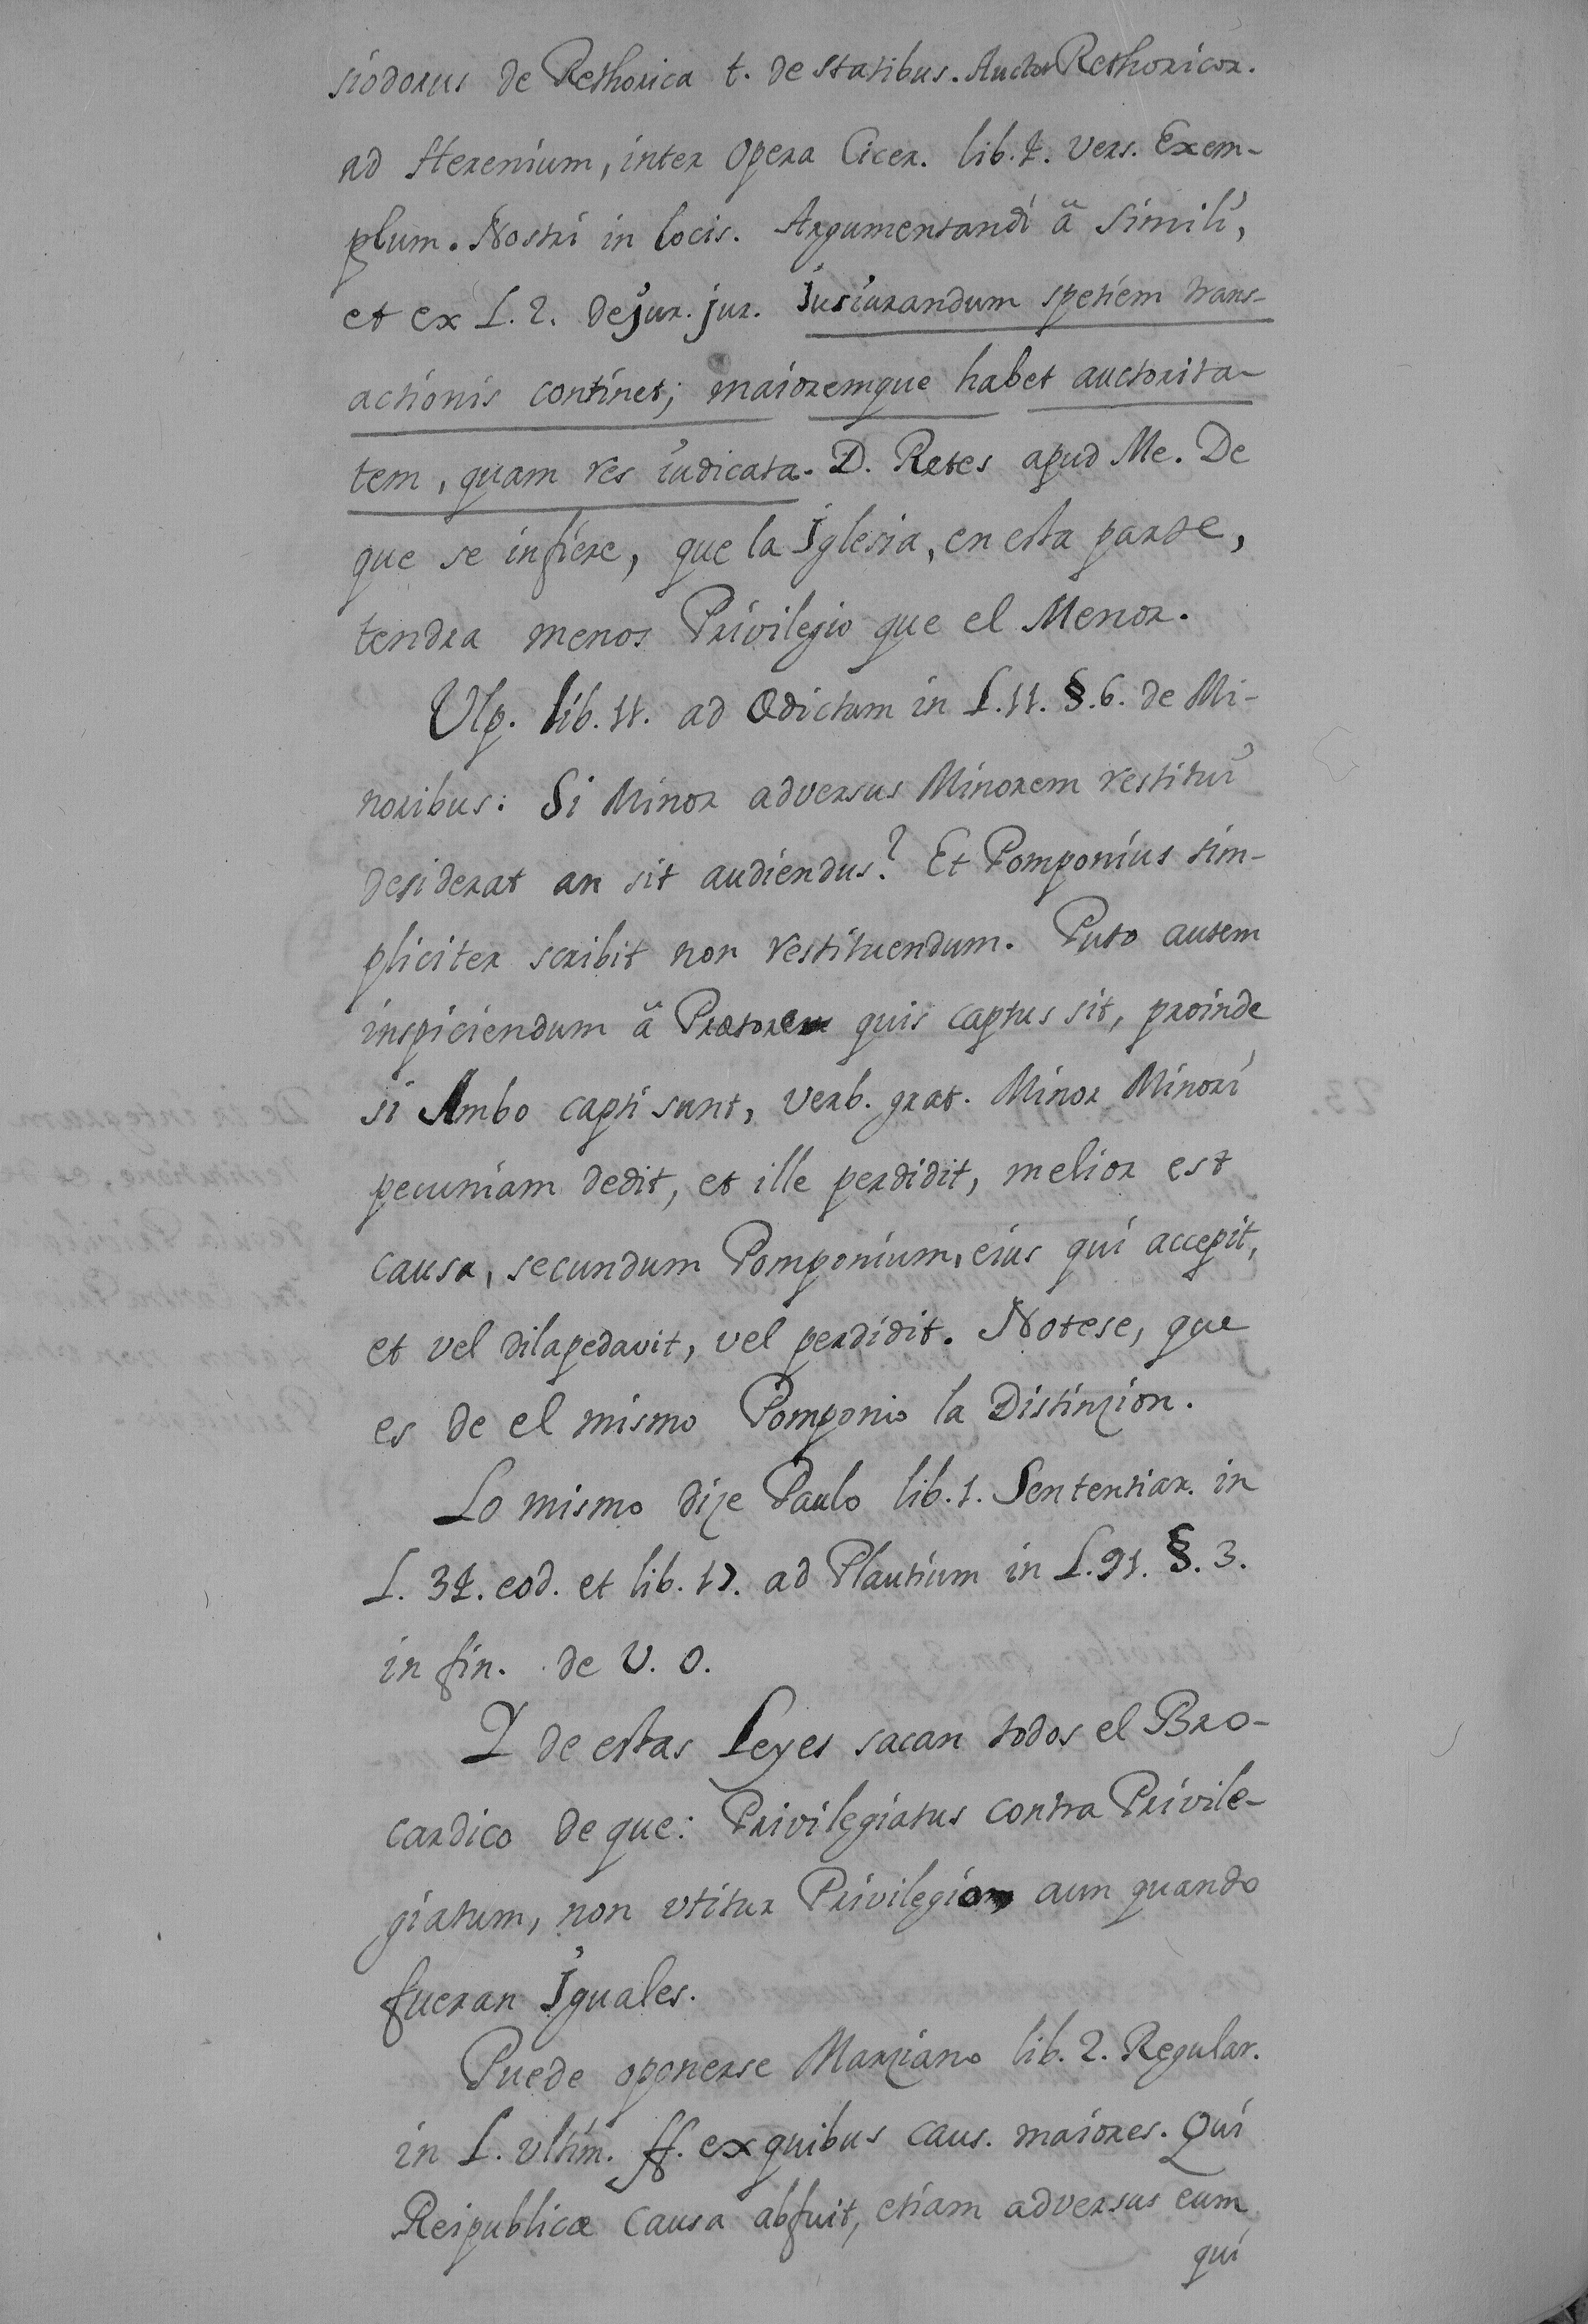 siodorus de Rethorica t. de statibus. Auctor Rethoricor.
ad Herenium, inter Opera Cicer. lib. 4. vers. Exem-
plum. Nostri in locis. Argumentandi â Simili,
et ex L. 2. de jur. jur. Jusiurandum spetiem trans-
actionis continet; maioremque habet auctorita-
tem, quam res iudicata. D. Retes apud Me. De
que se infiere, que la Iglesia, en esta parte,
tendra menos Privilegio que el Menor.
Ulp. lib. 11. ad Edictum in L. 11. §. 6. de Mi-
noribus: Si Minor adversus Minorem restitui
desiderat an sit audiendus? Et Pomponius sim-
pliciter scribit non restituendum. Puto autem
inspiciendum â Prætore quis captus sit, proinde
si Ambo capti sunt, verb. grat. Minor Minori
pecuniam dedit, et ille perdidit, melior est
causa, secundum Pomponium, eius qui accepit,
et vel dilapedavit, vel perdidit. Notese, que
es de el mismo Pomponio la Distinzion.
Lo mismo dize Paulo lib. 1. Sententiar. in
L. 34. eod. et lib. 17. ad Plautium in L. 91. §. 3.
in fin. de V. O.
Y de estas Leyes sacan todos el Bro-
cardico de que: Privilegiatus contra Privile-
giatum, non utitur Privilegio, aun quando
fueran Iguales.
Puede oponerse Marziano lib. 2. Regular.
in L. ultim. ff. ex quibus caus. maiores. Qui
Reipublicæ causa abfuit, etiam adversus eum
qui